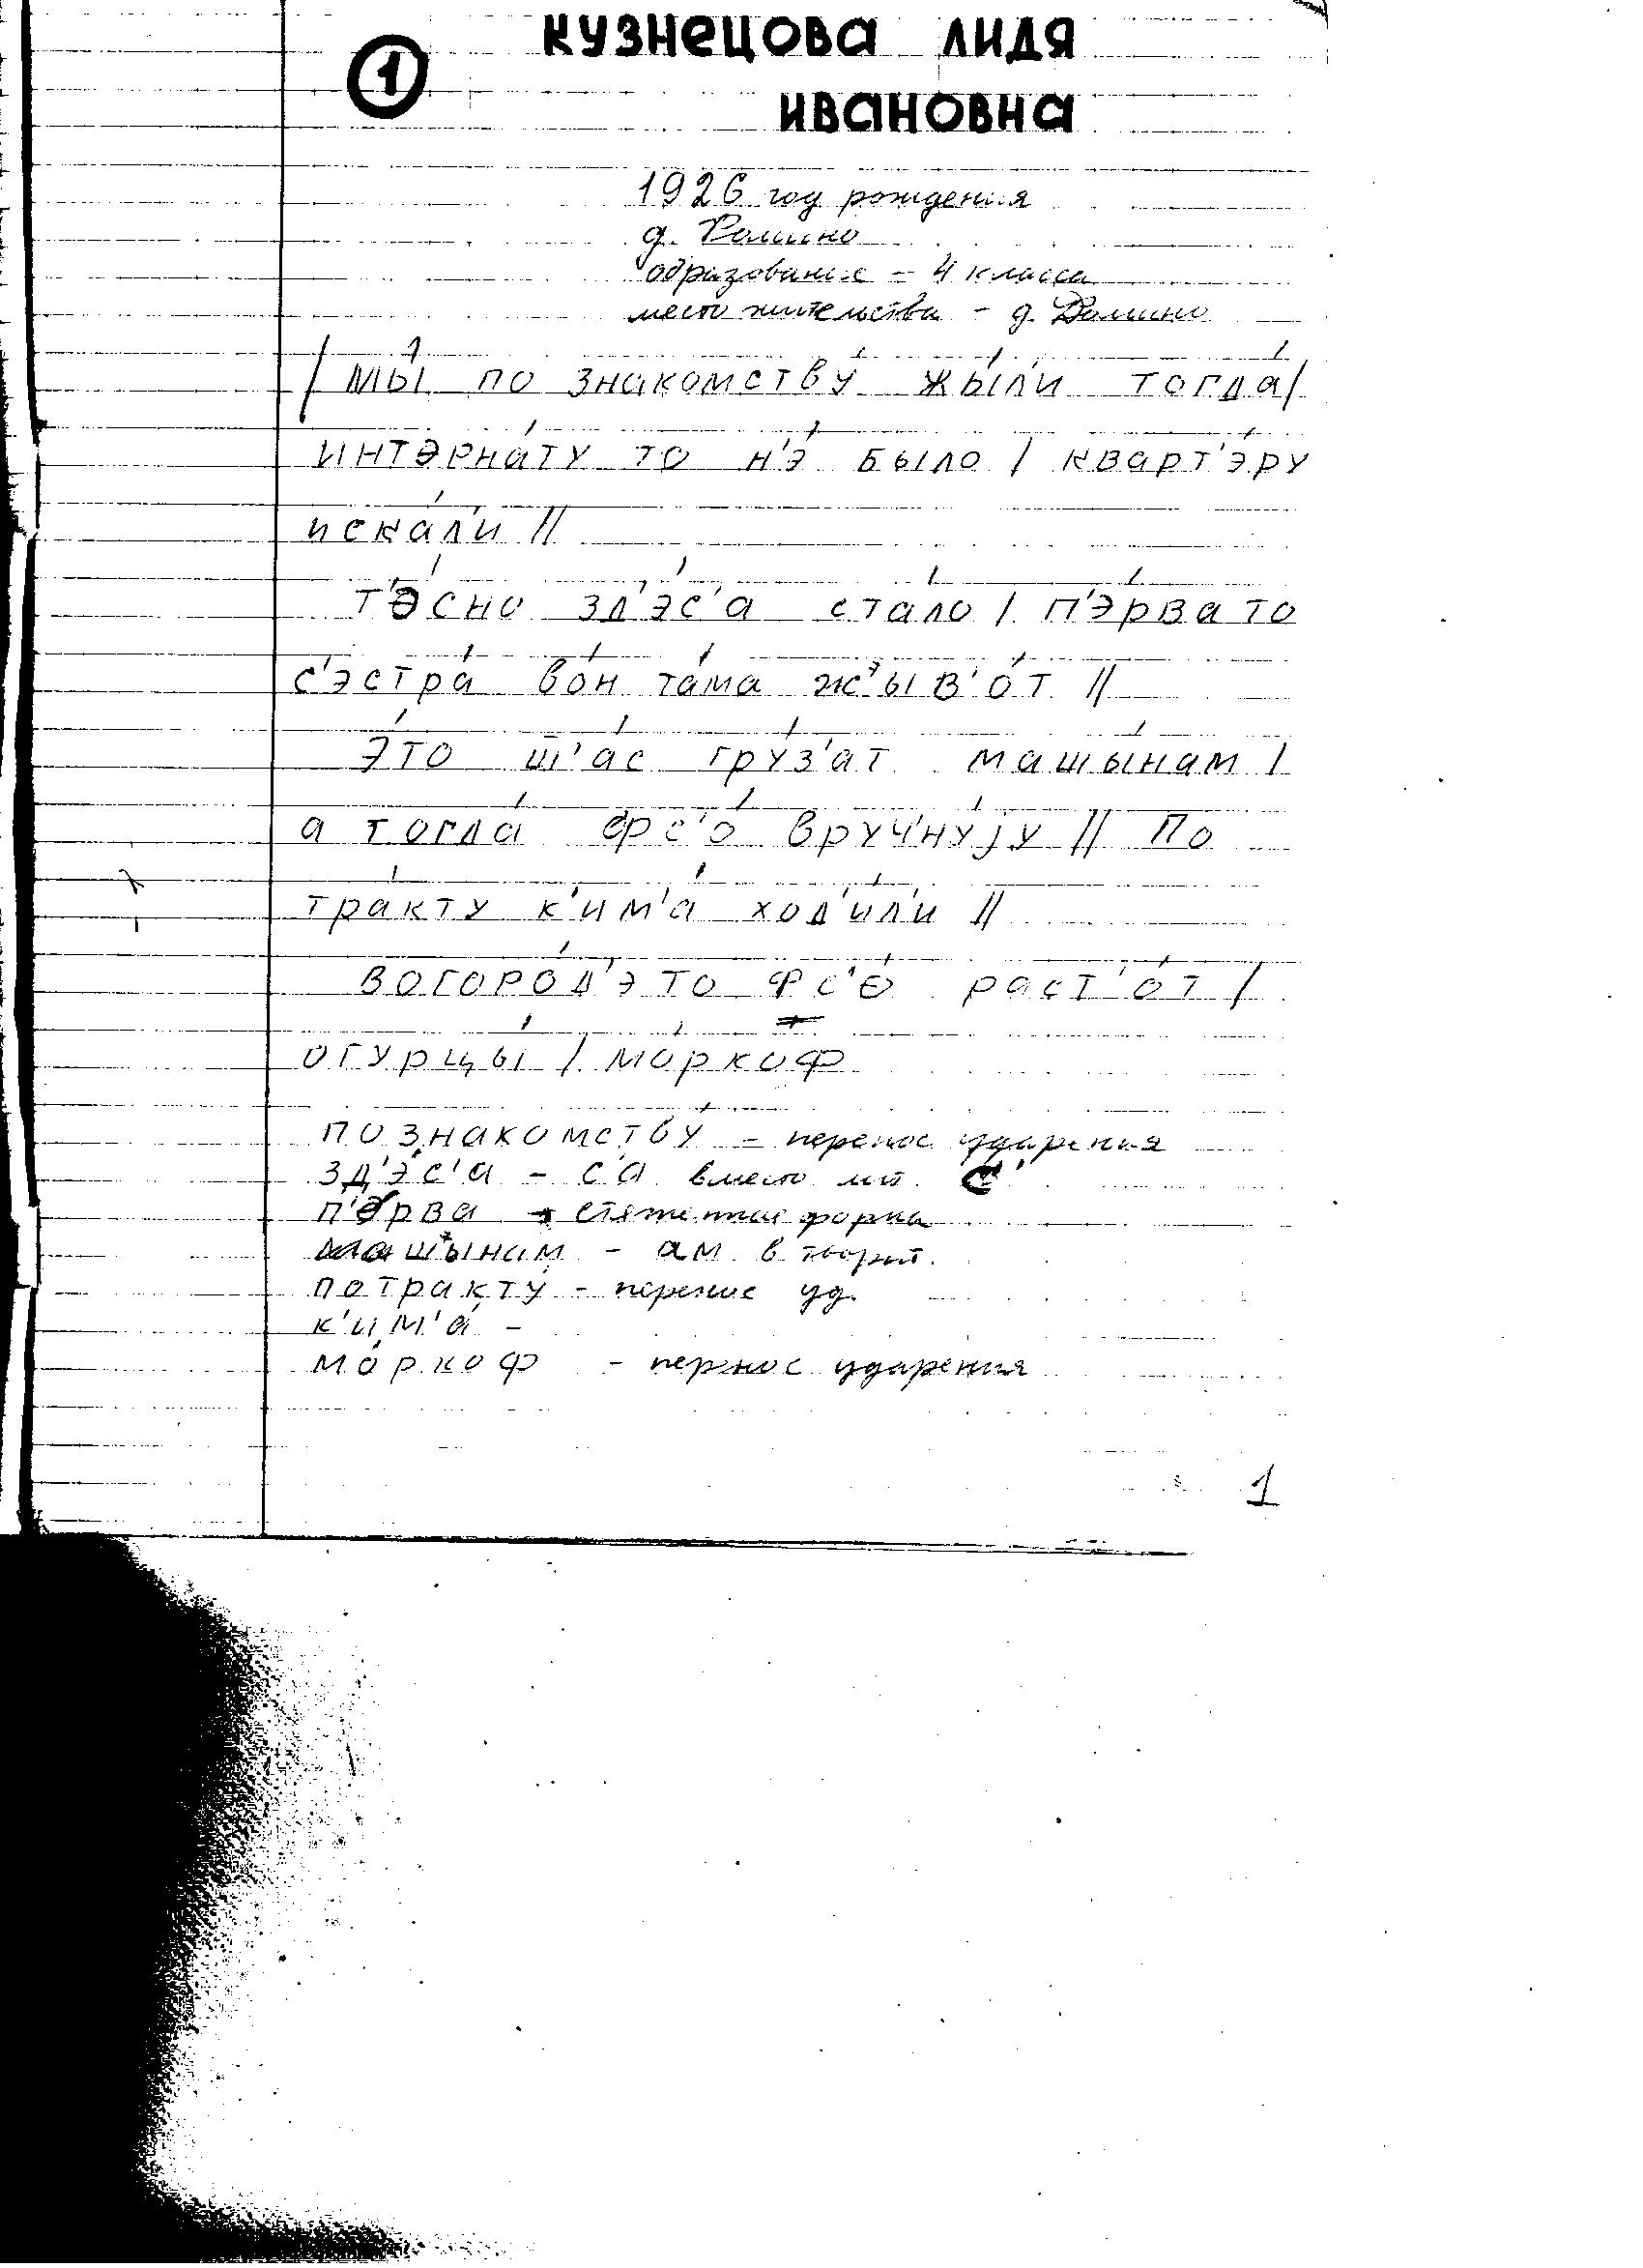 кузнецова лидя
1
ивановна
1926 год рождения
д. Ромино
образование - 4 класса
место жительства - д. Ромино
/ мы́ по знакомству́ жы́л'и тогда́ /
интэрна́ту то н'э́ было / кварт'э́ру
иска́л'и //
т'э́сно зд'э́с'а ста́ло / п'э́рва то
с'эстра́ во́н та́ма жыв'о́т //
э́то ш'а́с гру́з'ат машы́нам /
а тогда́ фс'о́ вручну́jу // По
тракту́ к'им'а́ ход'и́л'и //
вогоро́д'э то фс'о́ раст'о́т /
огурцы́ / мо́ркоф
по знакомству́ - перенос ударения
зд'э́с'а - с'а вместо с'
п'э́рва - стяженная форма
машы́нам - ам в творит.
по тракту́ - перенос уд.
к'им'а́ -
мо́ркоф - пернос ударения
1